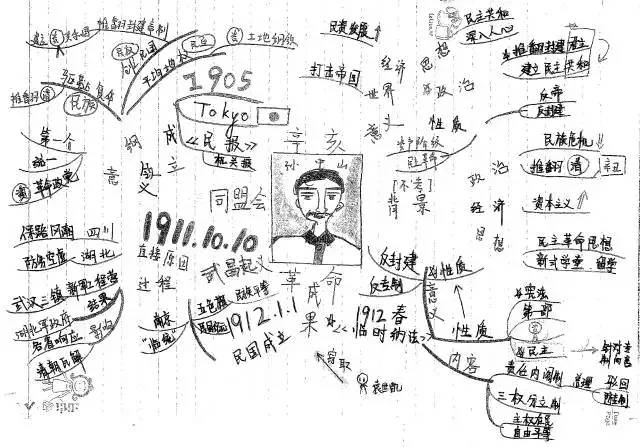 推翻封建帝制
民权
创立民国
平均地权
民生
土地纲领
驱除鞑虏
推翻清
民族
1905
Tokyo
《民报》
机关报
纲
成立
意义
第一个
统一
革命政党
同盟会
保路风潮 四川
防务空虚 湖北
武汉三镇
结果
湖北军政府
各省响应
清朝瓦解
影响
1911.10.10
直接原因
过程
武昌起义
五色旗
民族平等
南京
"临统"
1912.1.1
民国成立
辛亥
孙中山
革命
成果
窃取
袁世凯
民资发展
打击帝国
经济
世界
思想
政治
意义
民主共和
深入人心
推翻封建帝王
建立民主共和
反帝
反封建
性质
资产阶级
民主革命
[不考]
背景
政治
民族危机
推翻清
辛丑
经济
资本主义
思想
民主革命思想
新式学堂 留学
反封建
反专制
性质
意义
1912春
《临时约法》
性质
宪法
第一部
民主
内容
责任内阁制
总理
驳回
三权分立制
主权在民
自由平等